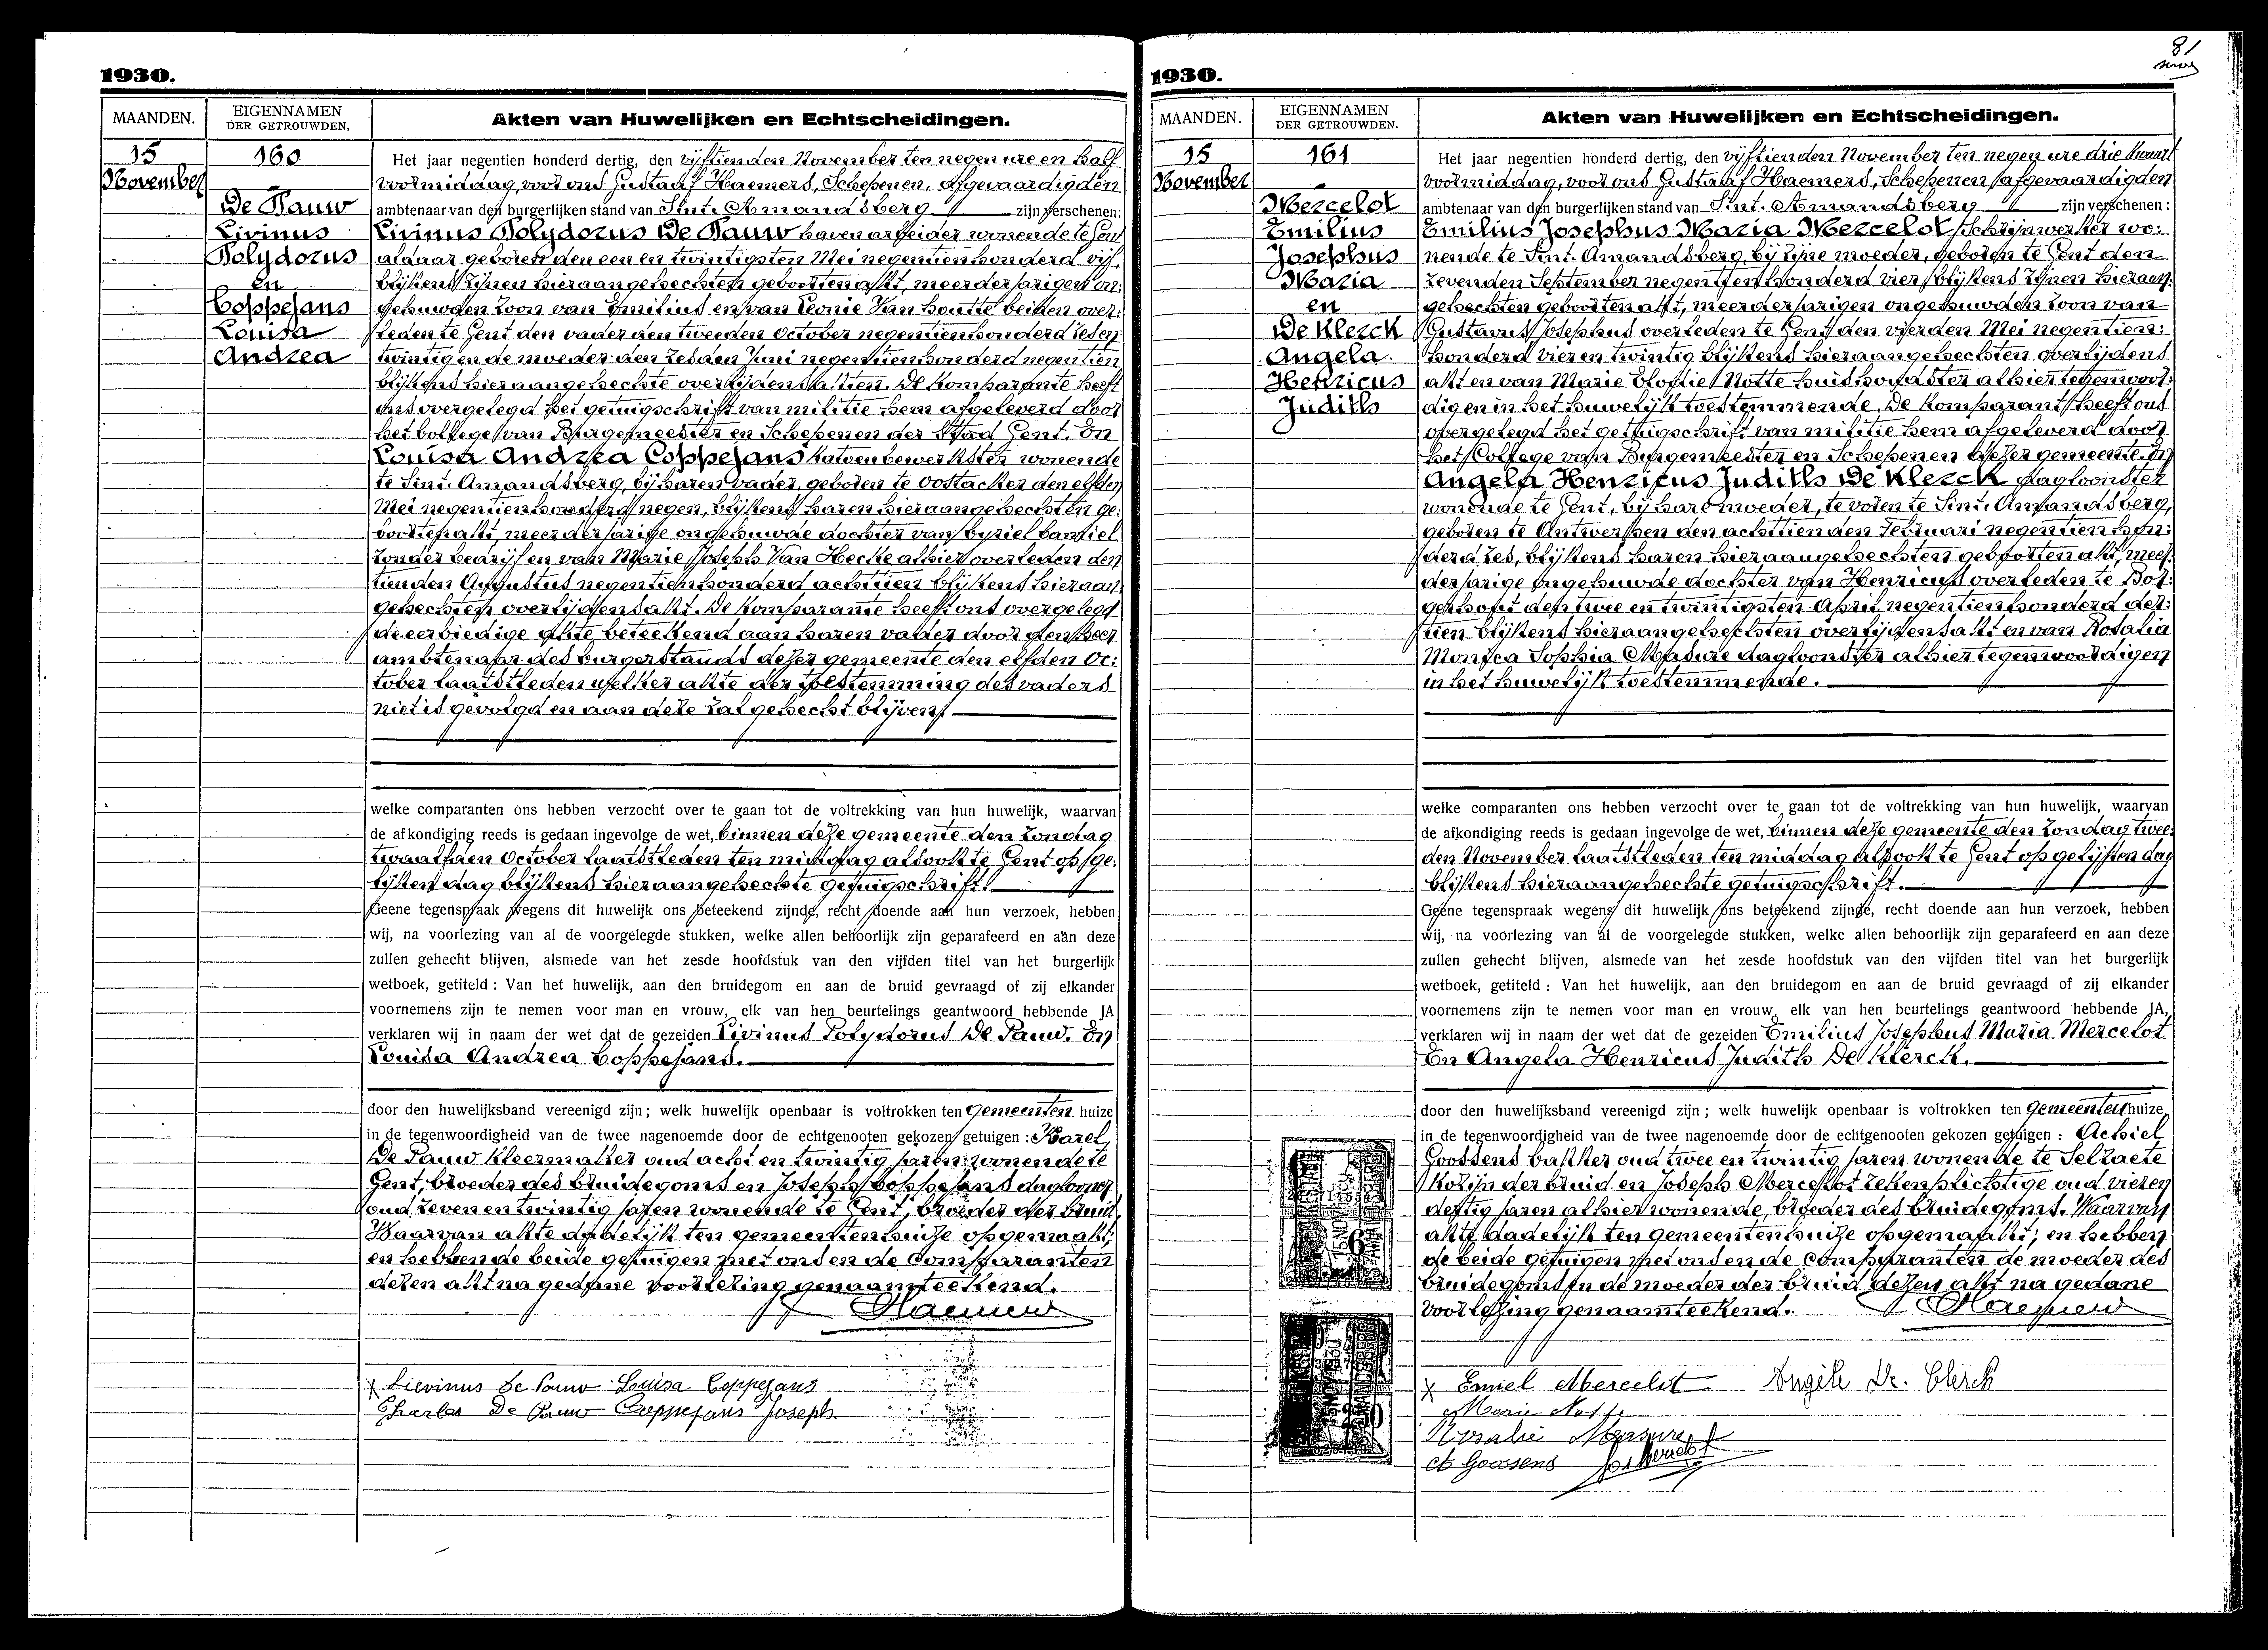 1930.
MAANDEN.
EIGENNAMEN
DER GETROUWDEN,
Akten van Huwelijken en Echtscheidingen.
15
November
160
De Pauw
Livinus
Polydorus
en
Coppejans
Louisa
Andrea
Het jaar negentien honderd dertig, den vijftienden November ten negen ure en half
voormiddag, voor ons Gustaaf Haemers, Schepenen, afgevaardigden
ambtenaar van den burgerlijken stand van Sint. Amandsberg zijn verschenen:
Livinus Polydorus De Pauw haven arbeider wonende te Gent
aldaar geboren den een en twintigsten Mei negentienhonderd vijf,
blijkens zijnen hieraangehechten geboortenakt, meerderjarigen on:
gehuwden zoon van Emilius en van Leonie Van Houtte beiden over:
leden te Gent den vader den tweeden October negentienhonderd zes en
twintig en de moeder den zesden Juni negentienhonderd negentien
blijkens hieraangehechte overlijdensakten. De komparante heeft
ons overgelegd het getuigschrift van militie hem afgeleverd door
het college van Burgemeester en Schepenen der Stad Gent. En
Louisa Andrea Coppejans katoenbewerkster wonende
te Sint. Amandsberg, bij haren vader, geboren te Oostacker den elfden
Mei negentienhonderd negen, blijkens haren hieraangehechten ge:
boortenakt, meerderjarige ongehuwde dochter van Cyriel Camiel
zonder bedrijf en van Marie Joseph Van Hecke alhier overleden den
tienden Augustus negentienhonderd achttien blijkens hieraan
gehechten overlijdensakt. De komparante heeft ons overgelegd
de eerbiedige akte beteekend aan haren vader door den heer
ambtenaar des burgerstands dezer gemeente den elfden Oc:
tober laatstleden welker akte der toestemming des vaders
niet is gevolgd en aan deze zal gehecht blijven
welke comparanten ons hebben verzocht over te gaan tot de voltrekking van hun huwelijk, waarvan
de afkondiging reeds is gedaan ingevolge de wet, binnen deze gemeente den zondag
twaalfden October laatstleden ten middag alsook te Gent op ge:
lijken dag blijkens hieraangehechte getuigschrift.
Geene tegenspraak wegens dit huwelijk ons beteekend zijnde, recht doende aan hun verzoek, hebben
wij, na voorlezing van al de voorgelegde stukken, welke allen behoorlijk zijn geparafeerd en aan deze
zullen gehecht blijven, alsmede van het zesde hoofdstuk van den vijfden titel van het burgerlijk
wetboek, getiteld : Van het huwelijk, aan den bruidegom en aan de bruid gevraagd of zij elkander
voornemens zijn te nemen voor man en vrouw, elk van hen beurtelings geantwoord hebbende JA
verklaren wij in naam der wet dat de gezeiden Livinus Polydorus De Pauw. En
Louisa Andrea Coppejans.
door den huwelijksband vereenigd zijn; welk huwelijk openbaar is voltrokken ten Gemeenten huize
in de tegenwoordigheid van de twee nagenoemde door de echtgenooten gekozen getuigen : Karel
De Pauw kleermaker oud acht en twintig jaren wonende te
Gent, broeder des bruidegoms en Joseph Coppejans dagloner
oud zeven en twintig jaren wonende te Gent, broeder der bruid,
Waarvan akte dadelijk ten gemeentenhuize opgemaakt;
en hebben de beide getuigen met ons en de Comparanten
dezen akt na gedane voorlezing genaamteekend.
Haemers
x Lievinus De Pauw Louisa Coppejans
Charles De Pauw Coppejans Joseph
81
1930.
MAANDEN.
EIGENNAMEN
DER GETROUWDEN.
Akten van Huwelijken en Echtscheidingen.
15
November
161
Mercelot
Emilius
Josephus
Maria
en
De Klerck
Angela.
Henricus
Judith
Het jaar negentien honderd dertig, den vijftienden November ten negen ure drie kwart
voormiddag, voor ons Gustaaf Haemers, Schepenen afgevaardigden
ambtenaar van den burgerlijken stand van Sint. Amandsberg zijn verschenen :
Emilius Josephus Maria Mercelot, Schrijnwerker wo:
nende te Sint. Amandsberg, bij zijne moeder, geboren te Gent den
zevenden September negentienhonderd vier, blijkens zijnen hieraan:
gehechten geboortenakt, meerderjarigen ongehuwden zoon van
Gustavus Josephus overleden te Gent den vierden Mei negentien:
honderd vier en twintig blijkens hieraangehechten overlijdens
akt en van Marie Clothie Notte huishoudster alhier tegenwoor:
dig en in het huwelijk toestemmende. De komparant heeft ons
overgelegd het getuigschrift van militie hem afgeleverd door
het College van Burgemeester en Schepenen dezer gemeente. En
Angela Henricus Judith De Klerck dagloonster
wonende te Gent, bij hare moeder, te voren te Sint. Amandsberg,
geboren te Antwerpen den achttienden Februari negentien hon:
derd zes, blijkens haren hieraangehechten geboortenakt, meer:
derjarige ongehuwde dochter van Henricus overleden te Bor:
gerhout den twee en twintigsten April negentienhonderd der:
tien blijkens hieraangehechten overlijdensakt en van Rosalia
Monica Sophia Masure dagloonster alhier tegenwoordig en
in het huwelijk toestemmende.
welke comparanten ons hebben verzocht over te gaan tot de voltrekking van hun huwelijk, waarvan
de afkondiging reeds is gedaan ingevolge de wet, binnen deze gemeente den zondag twee:
den November laatstleden ten middag alsook te Gent op gelijken dag
blijkens hieraangehechte getuigschrift.
Geene tegenspraak wegens dit huwelijk ons beteekend zijnde, recht doende aan hun verzoek, hebben
wij, na voorlezing van al de voorgelegde stukken, welke allen behoorlijk zijn geparafeerd en aan deze
zullen gehecht blijven, alsmede van het zesde hoofdstuk van den vijfden titel van het burgerlijk
wetboek, getiteld : Van het huwelijk, aan den bruidegom en aan de bruid gevraagd of zij elkander
voornemens zijn te nemen voor man en vrouw, elk van hen beurtelings geantwoord hebbende JA,
verklaren wij in naam der wet dat de gezeiden Emilius Josephus Maria Mercelot
En Angela Henricus Judith De Klerck.
door den huwelijksband vereenigd zijn ; welk huwelijk openbaar is voltrokken ten Gemeenten huize
in de tegenwoordigheid van de twee nagenoemde door de echtgenooten gekozen getuigen : Achiel
Goossens bakker oud twee en twintig jaren wonende te Selzaete
kozijn der bruid en Joseph Mercelot tekenplichtige oud vier en
dertig jaren alhier wonende, broeder des bruidegoms. Waarvan
akte dadelijk ten gemeentenhuize opgemaakt; en hebben
de beide getuigen met ons en de Comparanten de moeder des
bruidegoms en de moeder der bruid dezen akt na gedane
voorlezing genaamteekend. Haemers
x Emiel Mercelot Angèle De Clerck
Marie Notte
Rosalie Masure
A Goossens